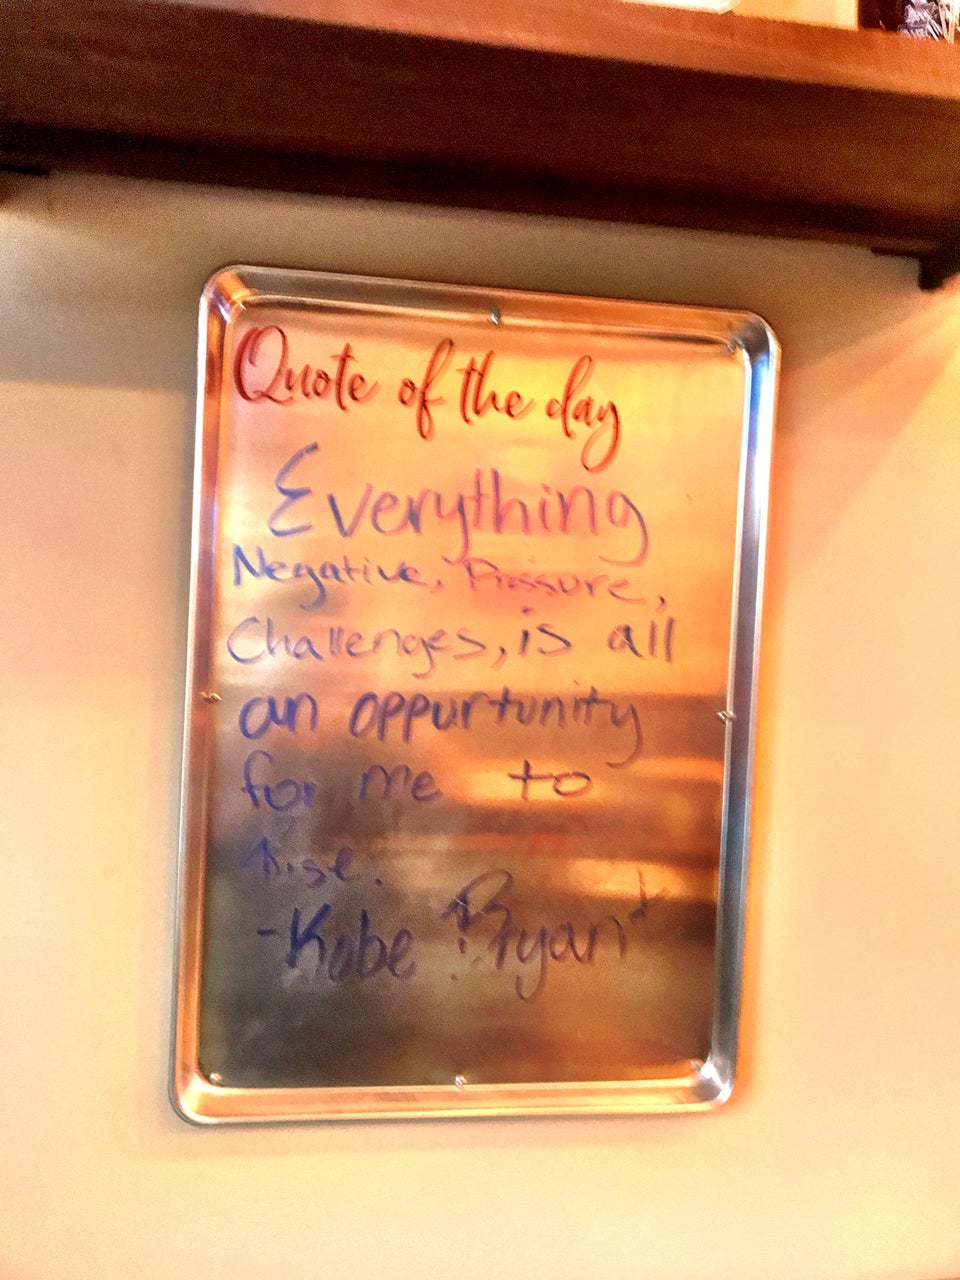 Quote of the day
Everything
Negative, Pressure,
Challenges, is all
an oppurtunity
for me to
Rise.
-Kobe Bryant